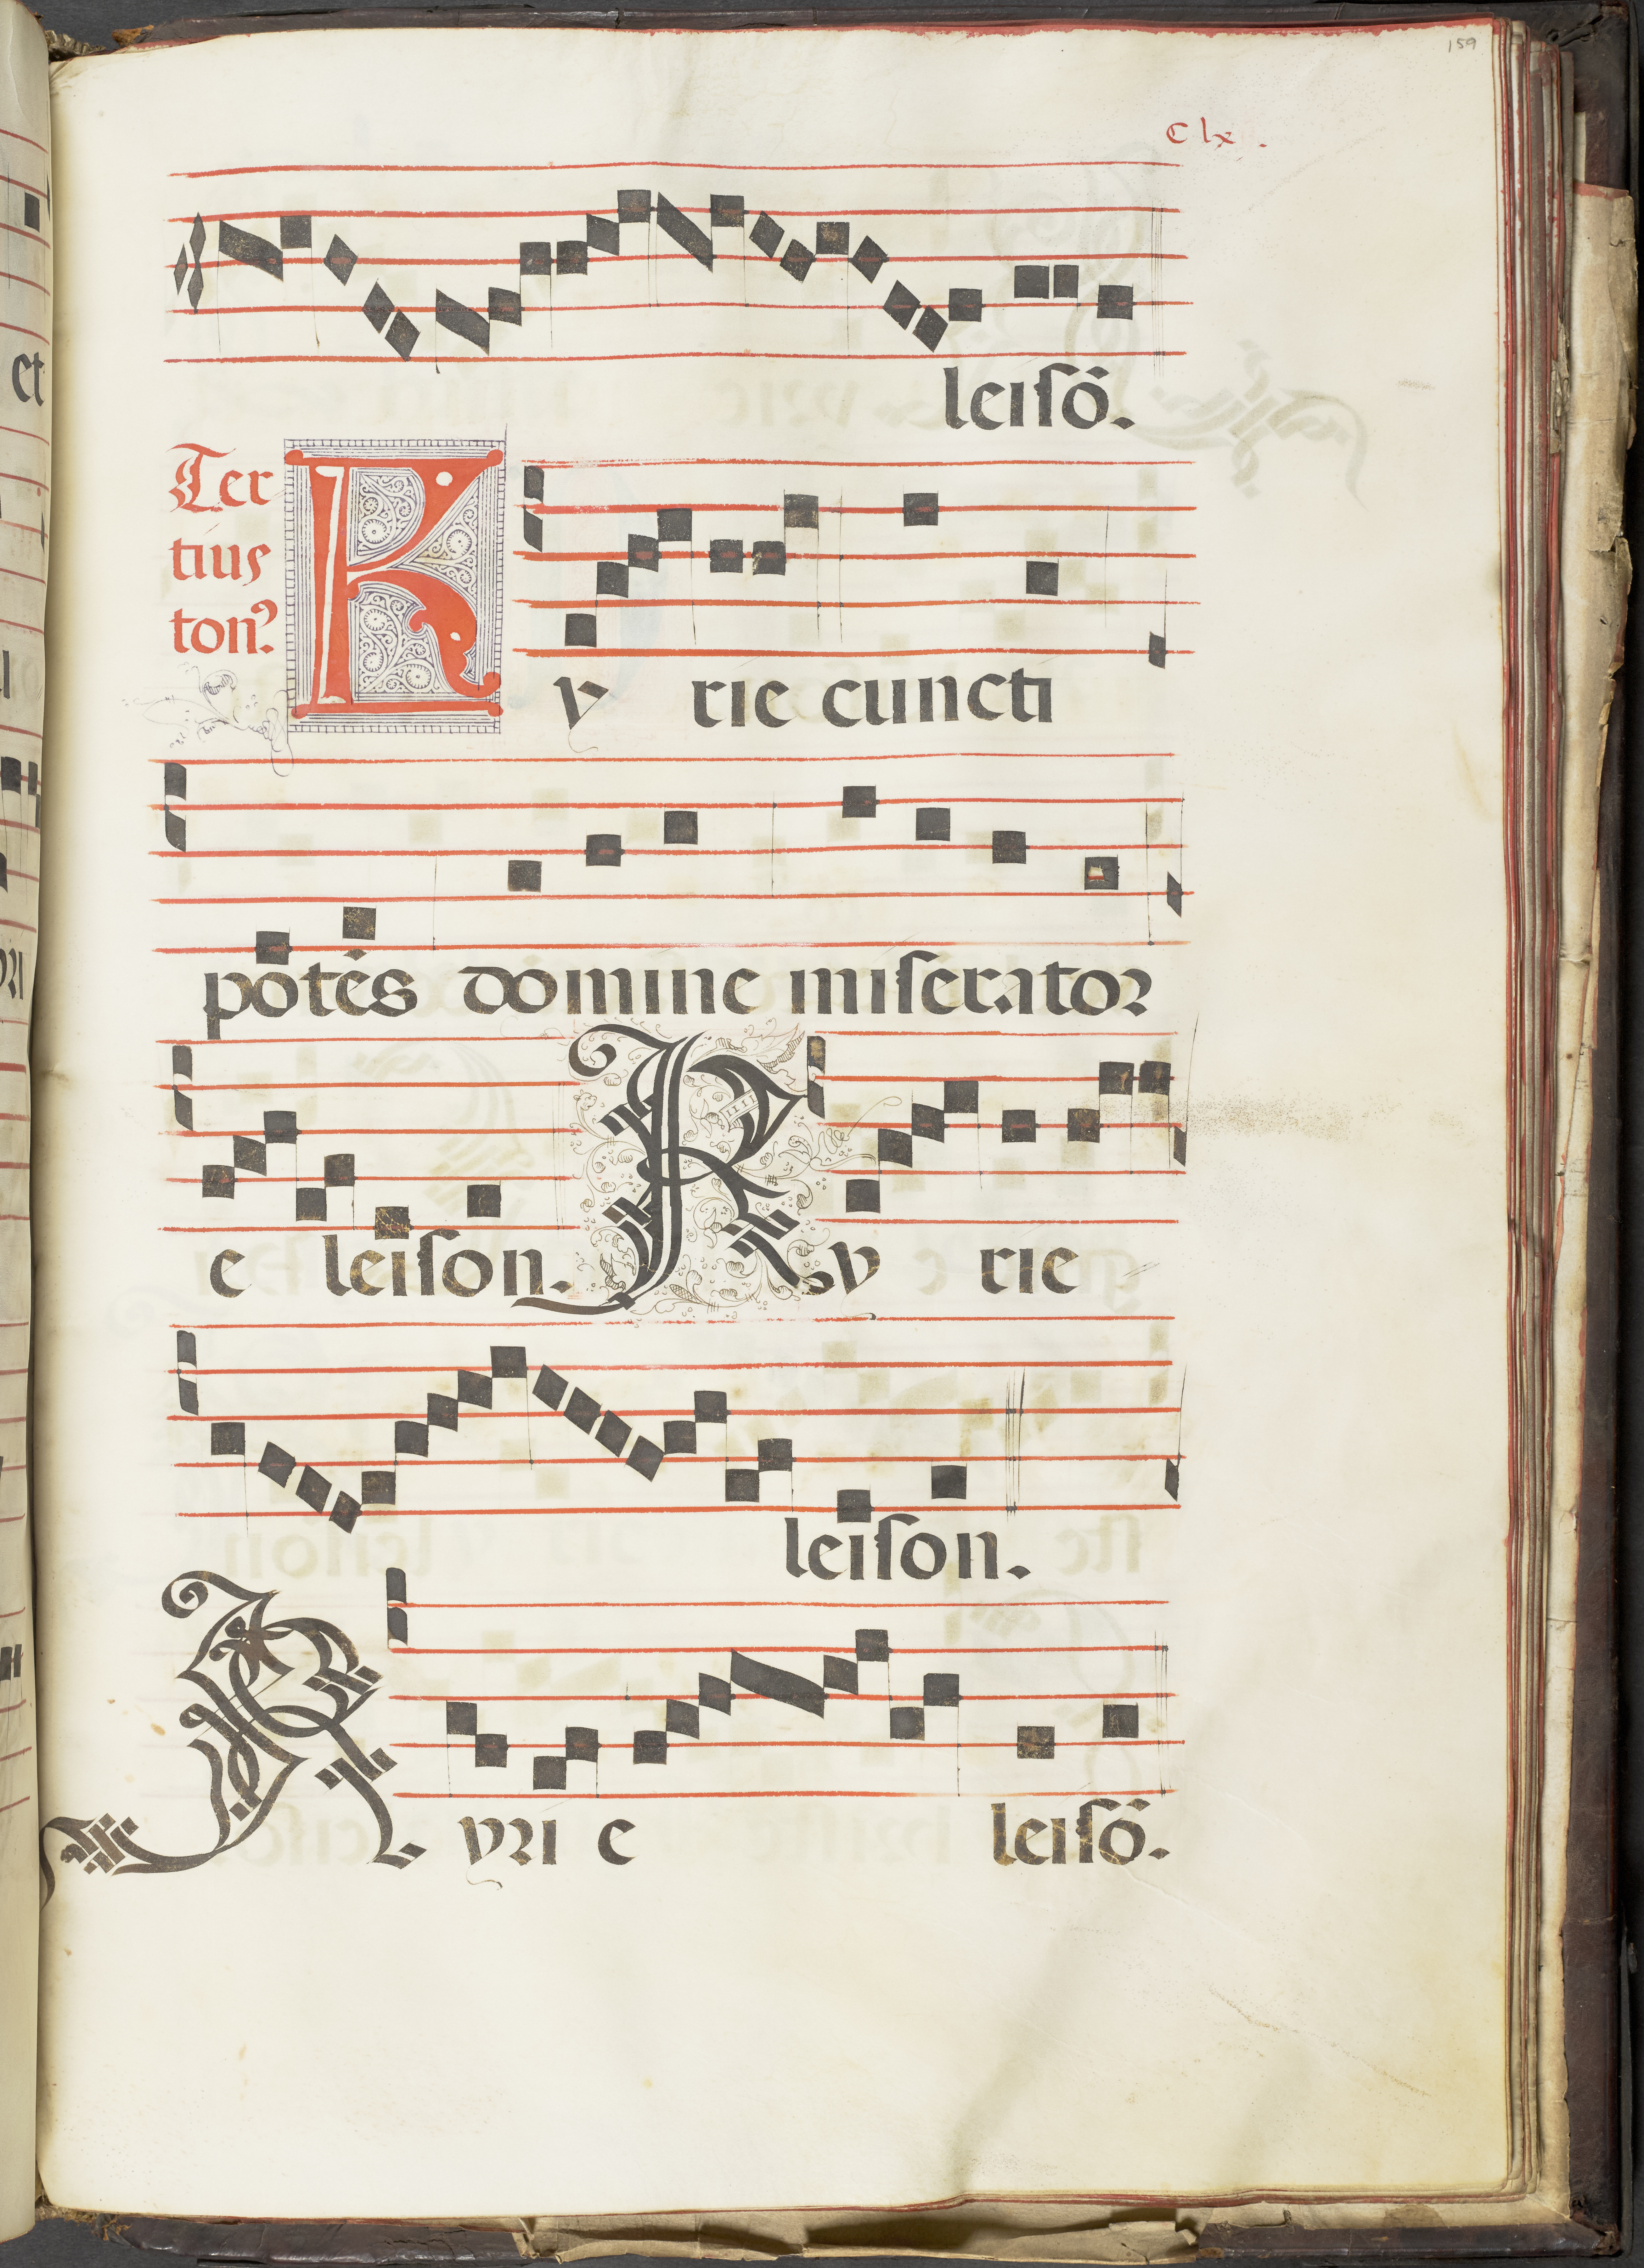 159
Clx.
leiſõ.
Ter
tius
ton9
Ky rie cuncti
potēs domine miſerator
e leiſon. Ky rie
leiſon.
Kyri e leiſõ.
et